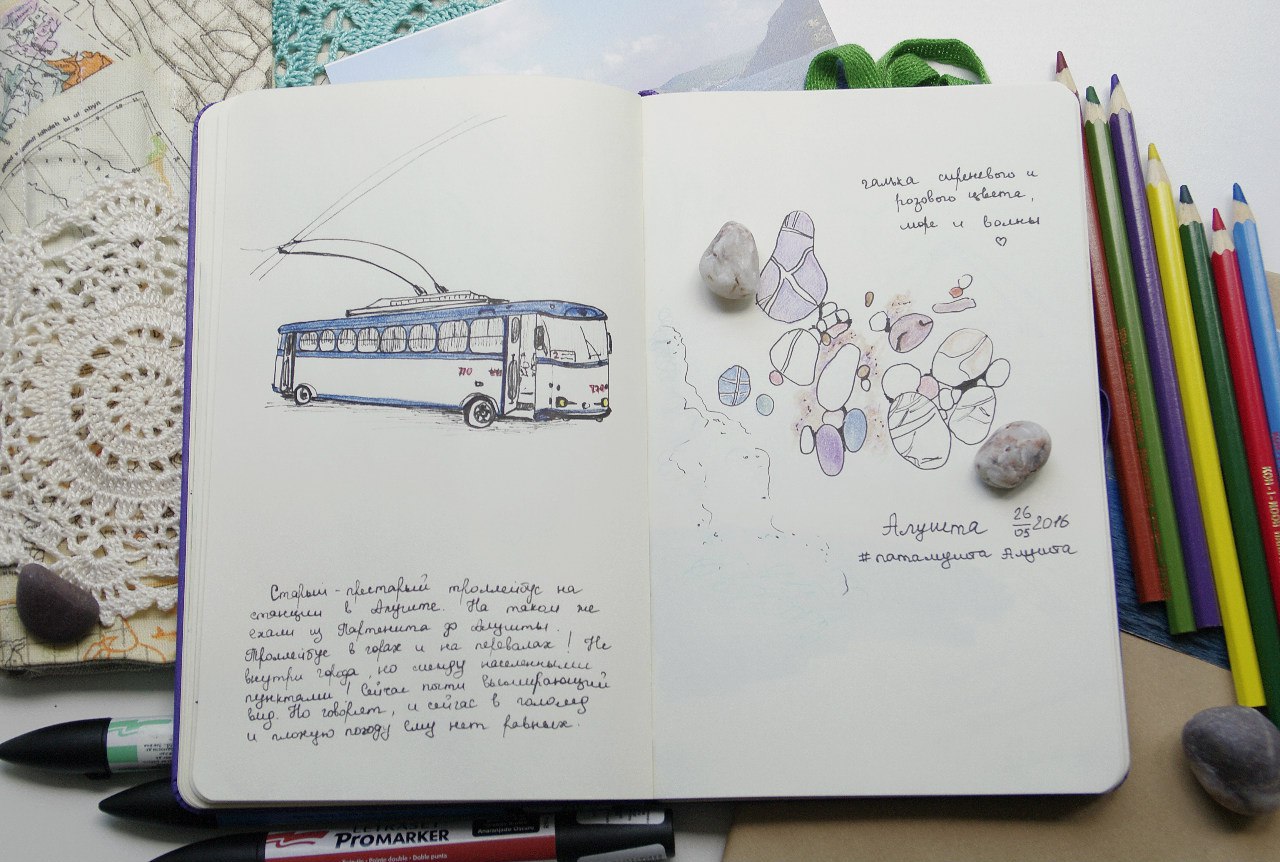 Старый-престарый троллейбус на
станции в Алуште. На таком же
ехали из Партенита до Алушты.
Троллейбус в горах и на перевалах! Не
внутри города, но между населенными
пунктами! Сейчас почти вымирающий
вид. Но говорят, и сейчас в гололед
и плохую погоду ему нет равных.
галька сиреневого и
розового цвета,
море и волны
♡
Алушта 26/05 2016
#патамушта Алушта
KOH-I-NOOR
PROMARKER